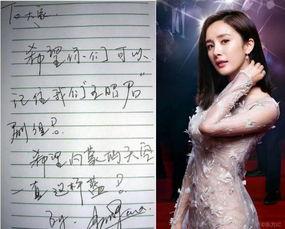 To 大家
希望你们可以
记住我们“王昭君”
剧组！
希望内蒙的天空
一直这样蓝！
By.